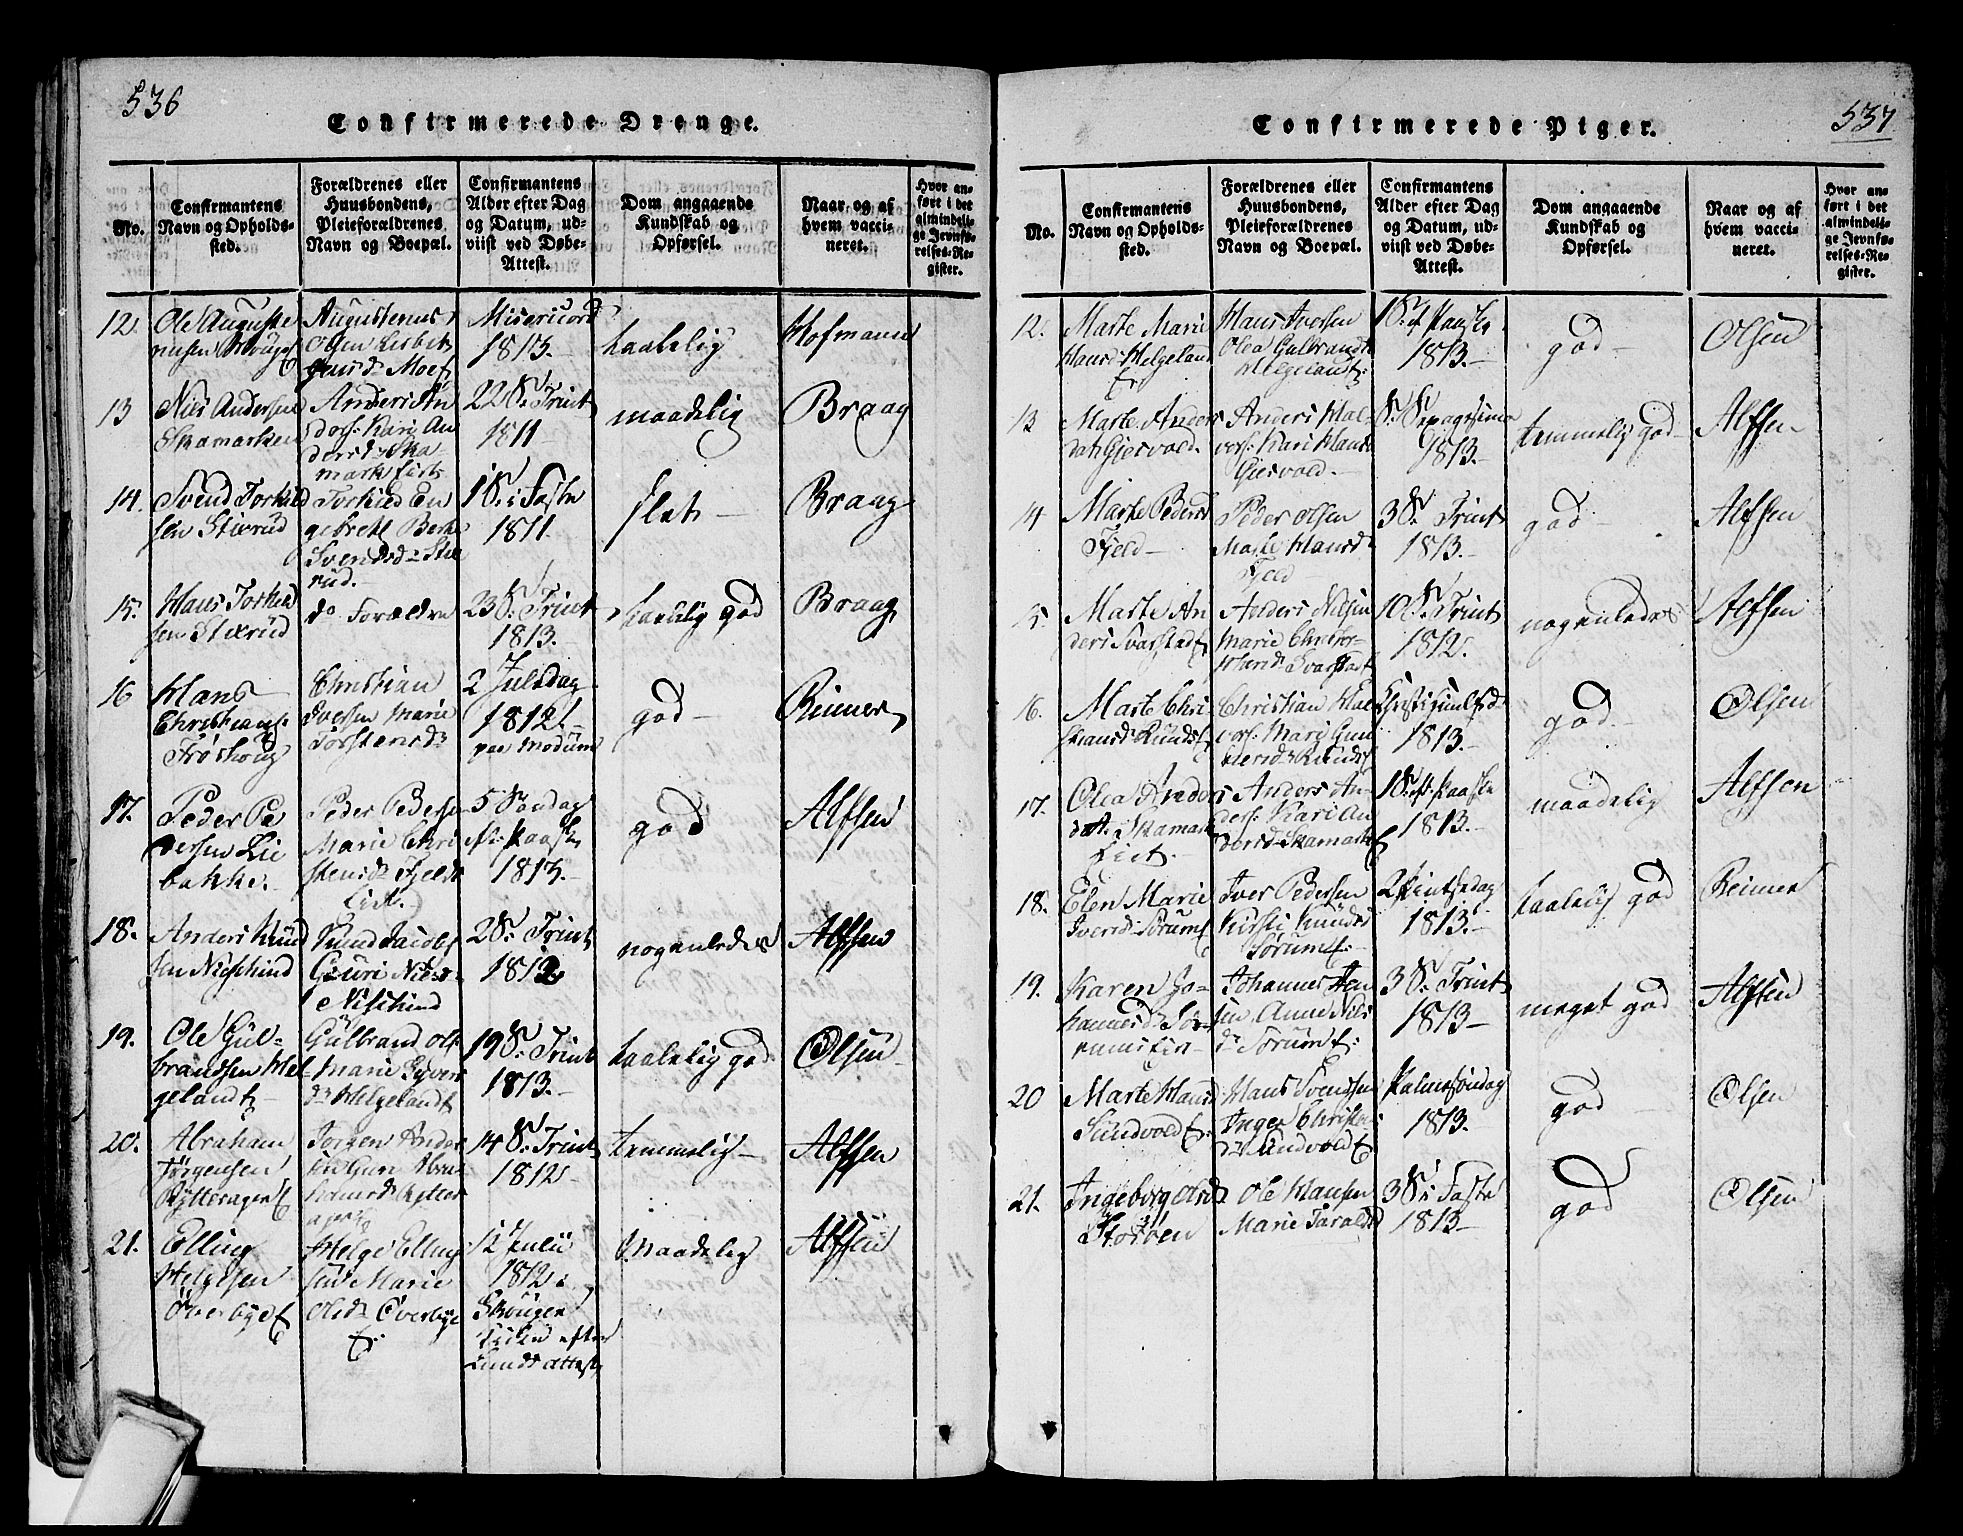 536
Confirmerede Drenge.
No.
Confirmantens
Navn og Opholds-
sted.
Forældrenes eller
Huusbondens,
Pleieforældrenes
Navn og Boepæl.
Confirmantens
Alder efter Dag
og Datum, ud-
viist ved Døbe-
Attest.
Dom angaaende
Kundskab og
Opførsel.
Naar og af
hvem vacci-
neret.
Hvor an-
ført i det
almindeli-
ge Jevnfø-
relses-Re-
gister.
12.
Ole Auguste
Augustenus
Olsen Lisbet
Misericord
1813.
taalelig
Hofmann
13
Niels Andersen
Skamarken
Anders An
ders: Kari An
dersd: Ska
mark
22 S: Trint
1811
maadelig
Braag
14.
Svend Torkild
sen Stixrud
Torkild En
gebretk Berte
Svendsd:
rud.
1 S. i Faste
1811.
slet
Braag
15.
Hans Torkild
sen Stixrud
do Forældre
23 S: Trint
1813.
taalelig god
Braag
16
Hans
Christians
Frøshoug
Christian
Iversen Marie
Torstensd:
2 Juledag
1812.
paa Modum
god
Reimer
17.
Peder Pe
dersen Lie
bakke.
Peder Peders
Marie Chri
stensd: Fjeld
Eiet.
5 Søndag
ft: Paaske
1813.
god
Alfsen
18.
Anders Knud
sen
Knud Jacobs
Guri Niels
2 S: Trint
1812
nogenledes
Alfsen
19.
Ole Gul-
brandsen Hel
gelandt
Gulbrand Ols
Marie Syvers
d: Helgelandt
19 S: Trint
1813.
taalelig god
Olsen
20.
Abraham
Jørgensen
Rytterager E
Jørgen Ander
sen Guri Abra
hamsd: Rytter
ager
14 S: Trint
1812
temmelig
Alfsen
21.
Elling
Helgesen
Øverbye E
Helge Elling
sen Marie
Olsd: Øverbye
E:
12 Julii
1812.
efter
Lunds attest
Maadelig
Alfsen
537
Confirmerede Piger.
No.
Confirmantens
Navn og Opholds-
sted.
Forældrenes eller
Huusbondens,
Pleieforældrenes
Navn og Boepæl.
Confirmantens
Alder efter Dag
og Datum, ud-
viist ved Døbe-
Attest.
Dom angaaende
Kundskab og
Opførsel.
Naar og af
hvem vacci-
neret.
Hvor an-
ført i det
almindeli-
ge Jevnfø-
relses-Re-
gister.
12.
Marte Marie
Hansd: Helgeland
E
Hans Iversen
Olea Gulbrands
Helgeland E.
1 S. ef Paaske
1813.
god
Olsen
13
Marte Anders
dat: Gjesvold.
Anders Hal
vors: Kari Hansd
Gjesvold.
S. Sepagesima
1813.
temmelig god
Alfsen
14
Marte Pedersd
Fjeld
Peder Olsen
Marte Hansd:
Fjeld
3 S. Trint
1813.
god
Alfsen
15
Marte An
ders Svarstad E
Anders Nilsen
Marie Christof
Svarstad E
10 S: Trint
1812.
nogenledes
Alfsen
16.
Marte Chri
stiansd: Runds E
Christian Hal
vors: Mari Gun
Christi himlfrd
1813.
god
Olsen
17.
Olea Anders
dat. Skamark
Eiet.
Anders An
ders: Kari An
dersd: Skamark E
1 S. eft Paaske
1813.
maadelig
Alfsen
18.
Elen Marie
Iversd: Sørum E
Iver Pedersen
Kirsti Knudsd
Sørum E:
2 Pintsedag
1813.
taalelig god
Reimer
19.
Karen Jo-
hannesd: Sør-
Johannes Jen
sen Anne Nils
d: Sørum E:
3 S. Trint
1813
meget god
Alfsen
20
Marte Hansd
Sundvold E:
Hans Svendsen
Inger Christo
d: Sundvold E
Palmesøndag
1813.
god
Olsen
21.
Ingeborg Olsd
Storøen
Ole Hansen
Marie Taralds
3 S i Faste
1813
god
Olsen